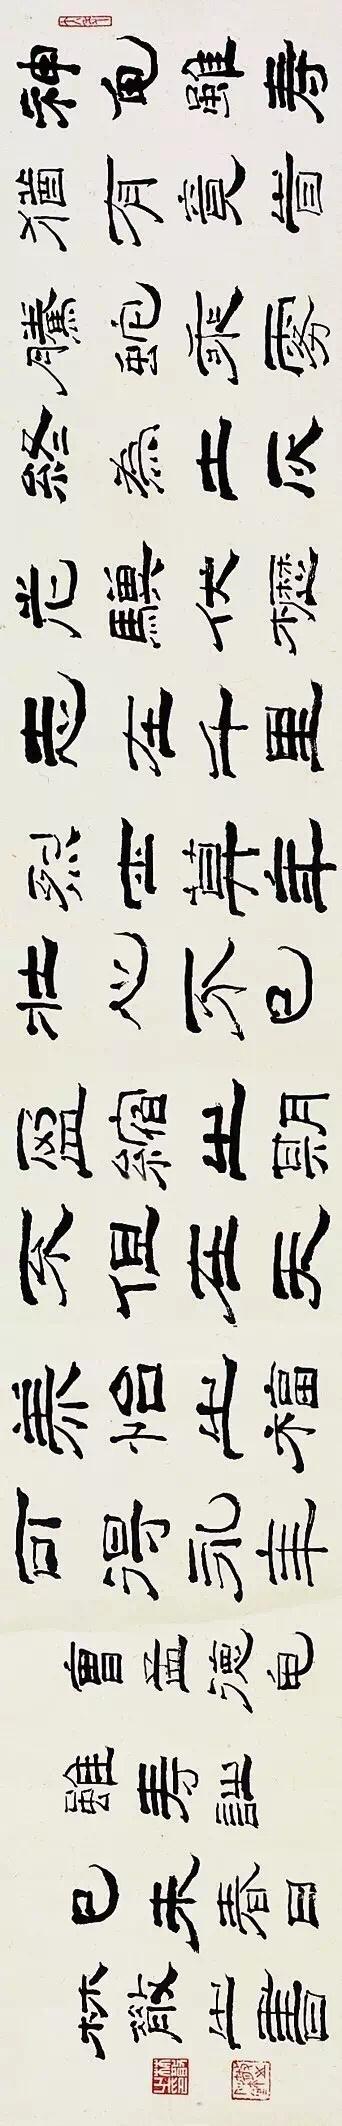 神龜雖壽
猶有竟旹
騰蛇乘霧
終為土灰
老驥伏櫪
志在千里
烈士暮年
壯心不已
盈縮之期
不但在天
養怡之福
可得永年
曹孟德龜
雖壽詩
己未春日
林散之書